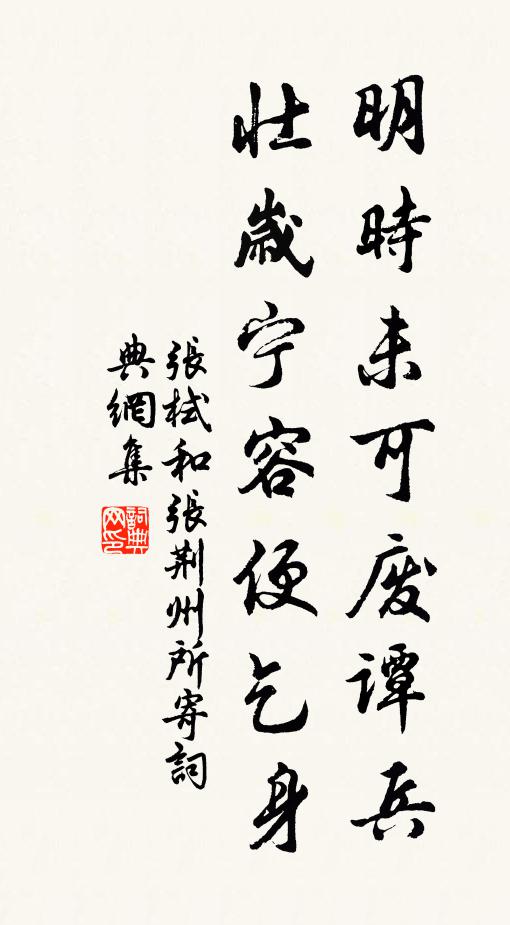 明時未可废谭兵
壮嵗宁容便乞身
張栻和張荆州所寄詞
典網集
詞典网印